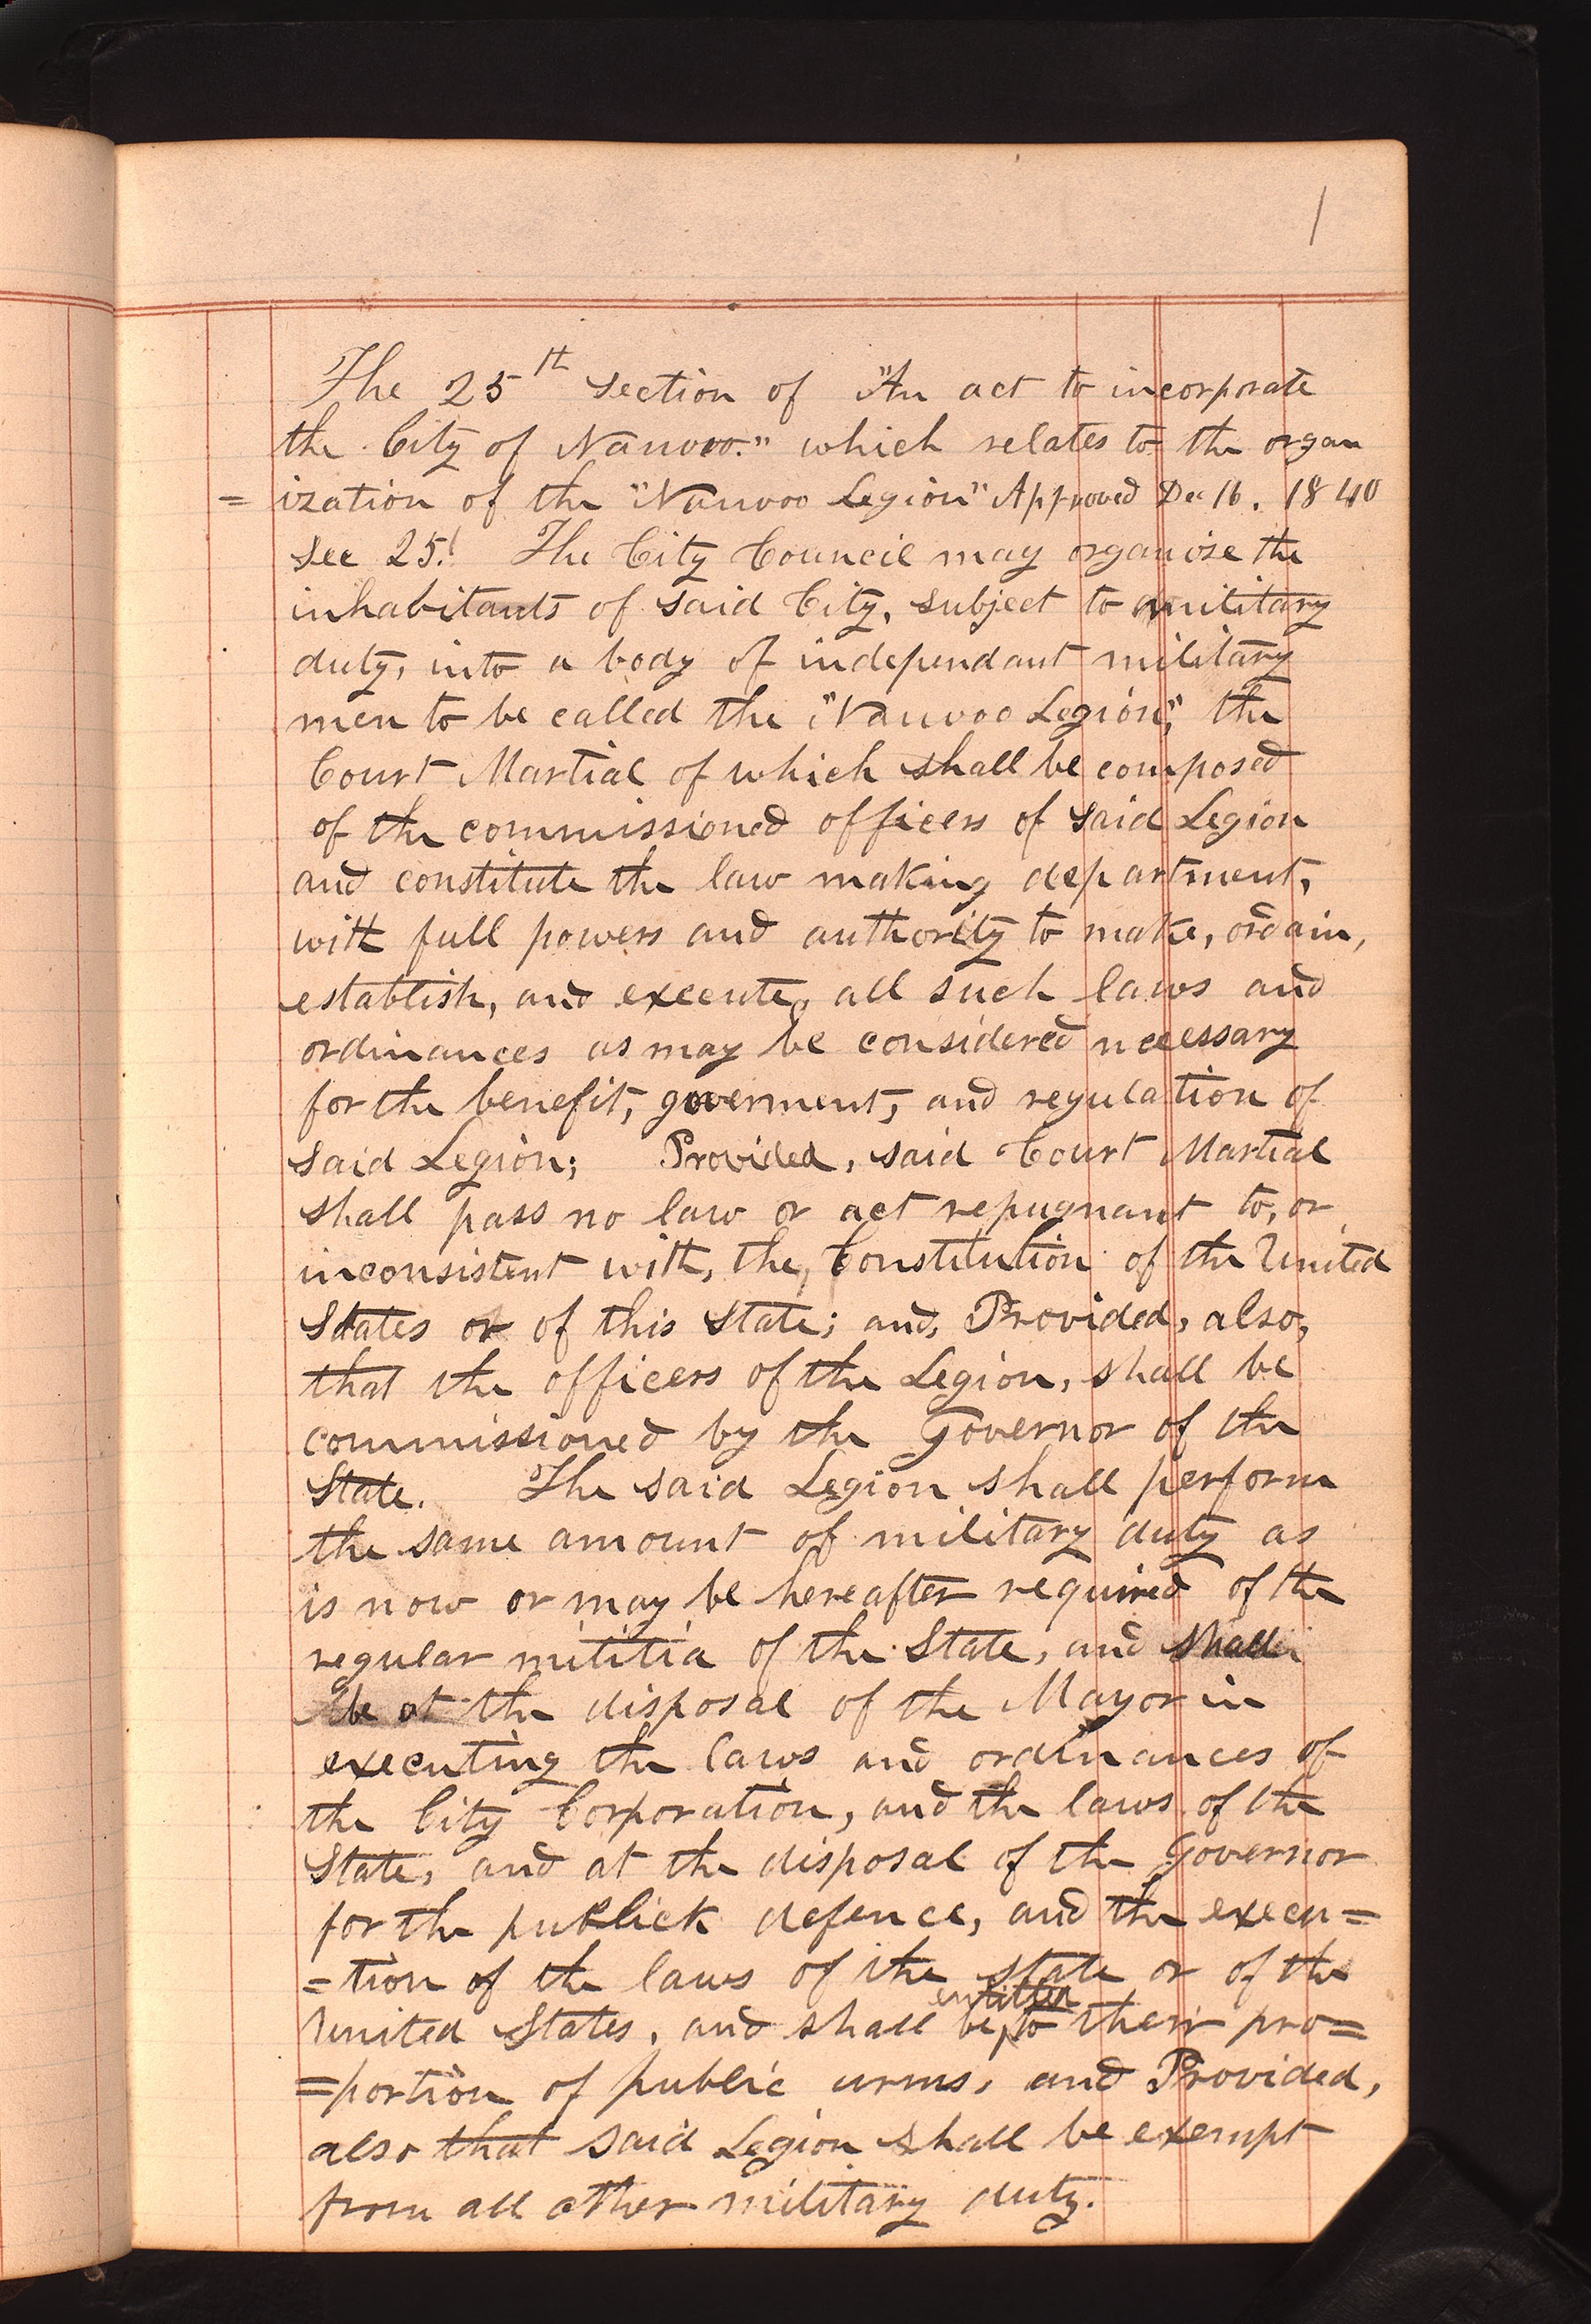 1
The 25th section of "An act to incorporate
the City of Nauvoo." which relates to the organ
= ization of the "Nauvoo Legion" Approved Dec 16. 1840
Sec 25. The City Council may organise the
inhabitants of said City, subject to military
duty, into a body of independant military
men to be called the "Nauvoo Legion", the
Court Martial of which shall be composed
of the commissioned officers of said Legion
and constitute the law making department,
with full powers and authority to make, ordain,
establish, and execute, all such laws and
ordinances as may be considered necessary
for the benefit, goverment, and regulation of
said Legion; Provided, said Court Martial
shall pass no law or act repugnant to, or
inconsistent with, the, Constitution of the United
States or of this State; and, Provided, also,
that the officers of the Legion, shall be
commissioned by the Governor of the
State. The said Legion shall perform
the same amount of military duty as
is now or may be hereafter required of the
regular militia of the State, and shall
be at the disposal of the Mayor in
executing the laws and ordinances of
the City Corporation, and the laws of the
State, and at the disposal of the Governor
for the publick defence, and the execu=
=tion of the laws of the state or of the
entitled
United States, and shall be, to their pro=
=portion of public arms, and Provided,
also that said Legion shall be exempt
from all other military duty.